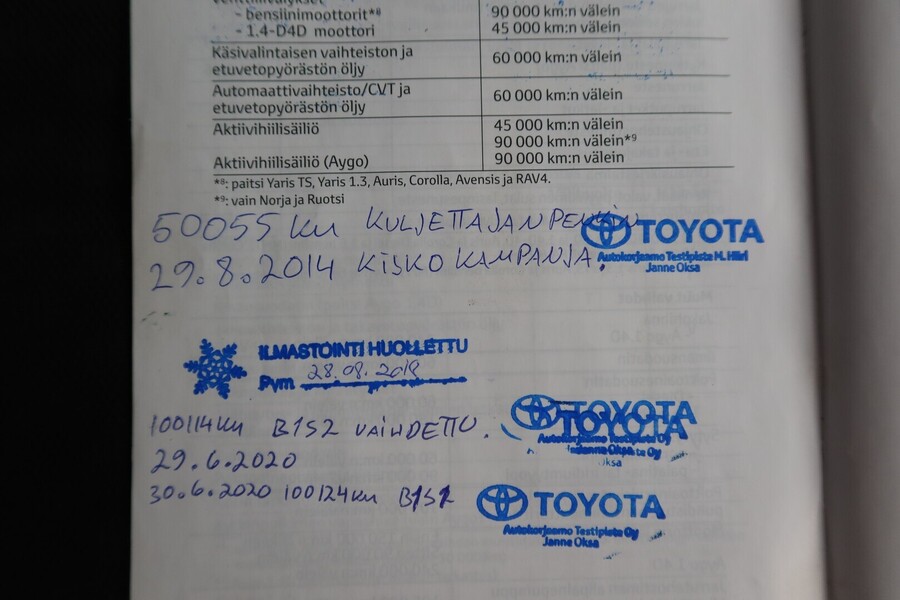 - bensiinimoottorit*⁸ 90 000 km:n välein
- 1.4-D4D moottori 45 000 km:n välein
Käsivalintaisen vaihteiston ja
etuvetopyörästön öljy 60 000 km:n välein
Automaattivaihteisto/CVT ja
etuvetopyörästön öljy 60 000 km:n välein
Aktiivihiilisäiliö 45 000 km:n välein
90 000 km:n välein*⁹
Aktiivihiilisäiliö (Aygo) 90 000 km:n välein
*⁸: paitsi Yaris TS, Yaris 1.3, Auris, Corolla, Avensis ja RAV4.
*⁹: vain Norja ja Ruotsi
50055 km KULJETTAJAN PENKIN
29.8.2014 KISKO KAMPANJA.
TOYOTA
Autokorjaamo Testipiste M. Hiiri
Janne Oksa
ILMASTOINTI HUOLLETTU
Pvm 28.08.2018
100114 km B1S2 VAIHDETTU.
29.6.2020
TOYOTA
TOYOTA
Autokorjaamo Testipiste Oy
30.6.2020 100124 km
TOYOTA
Autokorjaamo Testipiste Oy
Janne Oksa